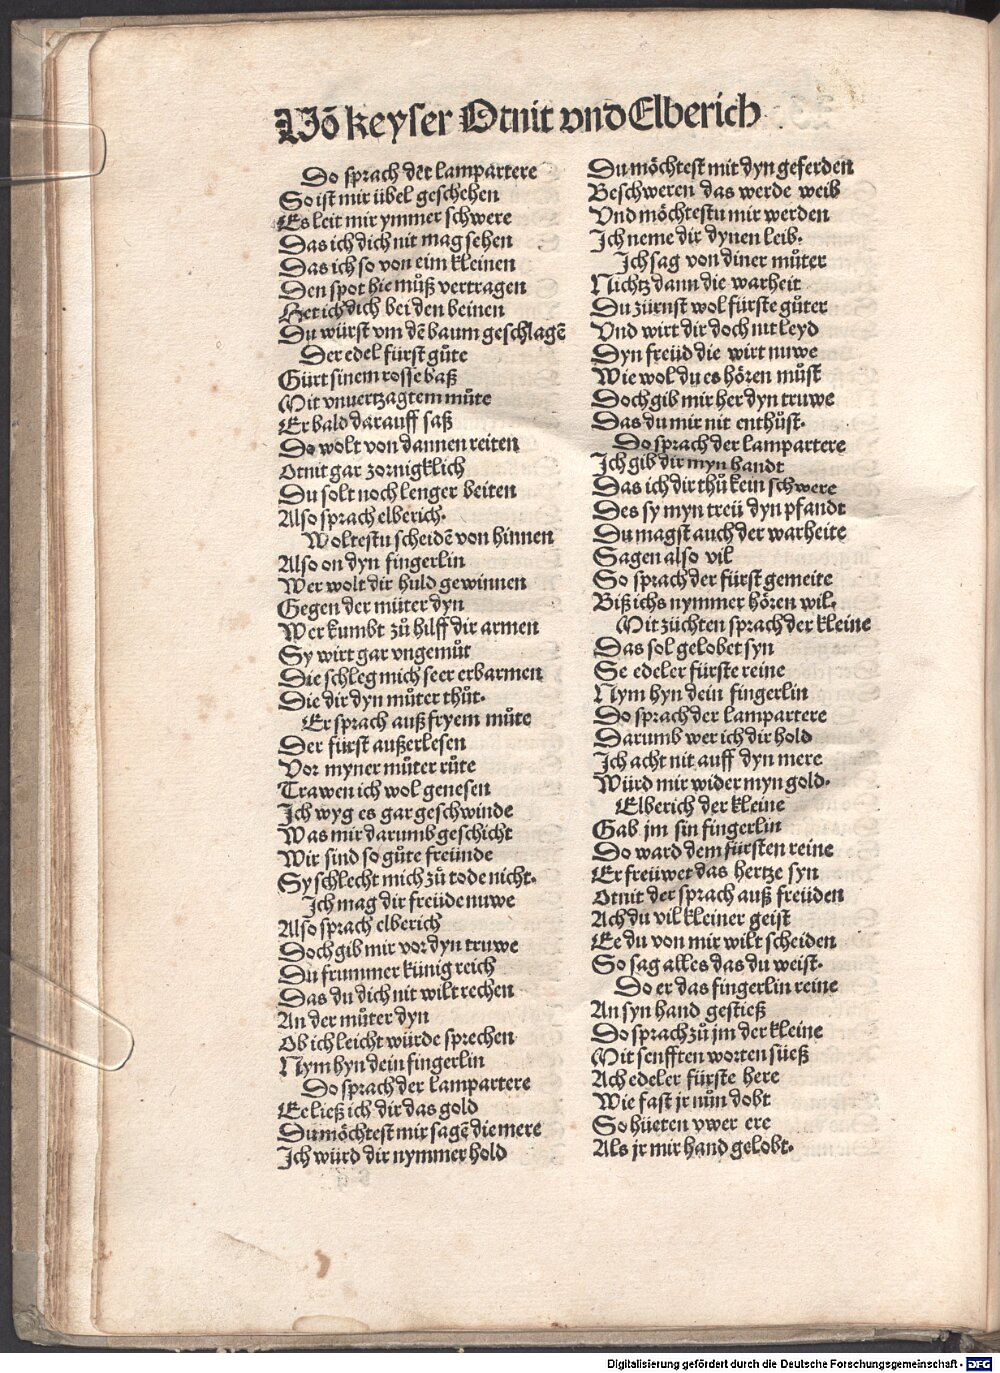 Võ keyser Otnit vnd Elberich
Do sprach der lampartere
So ist mir übel geschehen
Es leit mir ymmer schwere
Das ich dich nit mag sehen
Das ich so von eim kleinen
Den spot hie můß vertragen
Het ich dich bei den beinen
Du würst vm dẽ baum geschlagẽ
Der edel fürst gůte
Gürt sinem rosse baß
Mit vnuertzagtem můte
Er bald darauff saß
Do wolt von dannen reiten
Otnit gar zornigklich
Du solt noch lenger beiten
Also sprach elberich.
Woltestu scheidẽ von hinnen
Also on dyn fingerlin
Wer wolt dir huld gewinnen
Gegen der můter dyn
Wer kumbt zů hilff dir armen
Sy wirt gar vngemůt
Die schleg mich seer erbarmen
Die dir dyn můter thůt.
Er sprach auß fryem můte
Der fürst außerlesen
Vor myner můter růte
Trawen ich wol genesen
Ich wyg es gar geschwinde
Was mir darumb geschicht
Wir sind so gůte freünde
Sy schlecht mich zů tode nicht.
Ich mag dir freüde nuwe
Also sprach elberich
Doch gib mir vor dyn truwe
Du frummer künig reich
Das du dich nit wilt rechen
An der můter dyn
Ob ich leicht würde sprechen
Nym hyn dein fingerlin
Do sprach der lampartere
Ee ließ ich dir das gold
Du möchtest mir sagẽ die mere
Ich würd dir nymmer hold
Du möchtest mit dyn geferden
Beschweren das werde weib
Vnd möchtestu mir werden
Ich neme dir dynen leib.
Ich sag von diner můter
Nichtz dann die warheit
Du zürnst wol fürste gůter
Vnd wirt dir doch nit leyd
Dyn freüd die wirt nuwe
Wie wol du es hören můst
Doch gib mir her dyn truwe
Das du mir nit enthůst.
Do sprach der lampartere
Ich gib dir myn handt
Das ich dir thů kein schwere
Des sy myn treü dyn pfandt
Du magst auch der warheite
Sagen also vil
So sprach der fürst gemeite
Biß ichs nymmer hören wil.
Mit züchten sprach der kleine
Das sol gelobet syn
Se edeler fürste reine
Nym hyn dein fingerlin
Do sprach der lampartere
Darumb wer ich dir hold
Ich acht nit auff dyn mere
Würd mir wider myn gold.
Elberich der kleine
Gab jm sin fingerlin
Do ward dem fürsten reine
Erfreüwet das hertze syn
Otnit der sprach auß freüden
Ach du vil kleiner geist
Ee du von mir wilt scheiden
So sag alles das du weist.
Do er das fingerlin reine
An syn hand gestieß
Do sprach zů jm der kleine
Mit senfften worten süeß
Ach edeler fürste here
Wie fast jr nůn dobt
So hüeten vwer ere
Als jr mir hand gelobt.
Digitalisierung gefördert durch die Deutsche Forschungsgemeinschaft - DFG